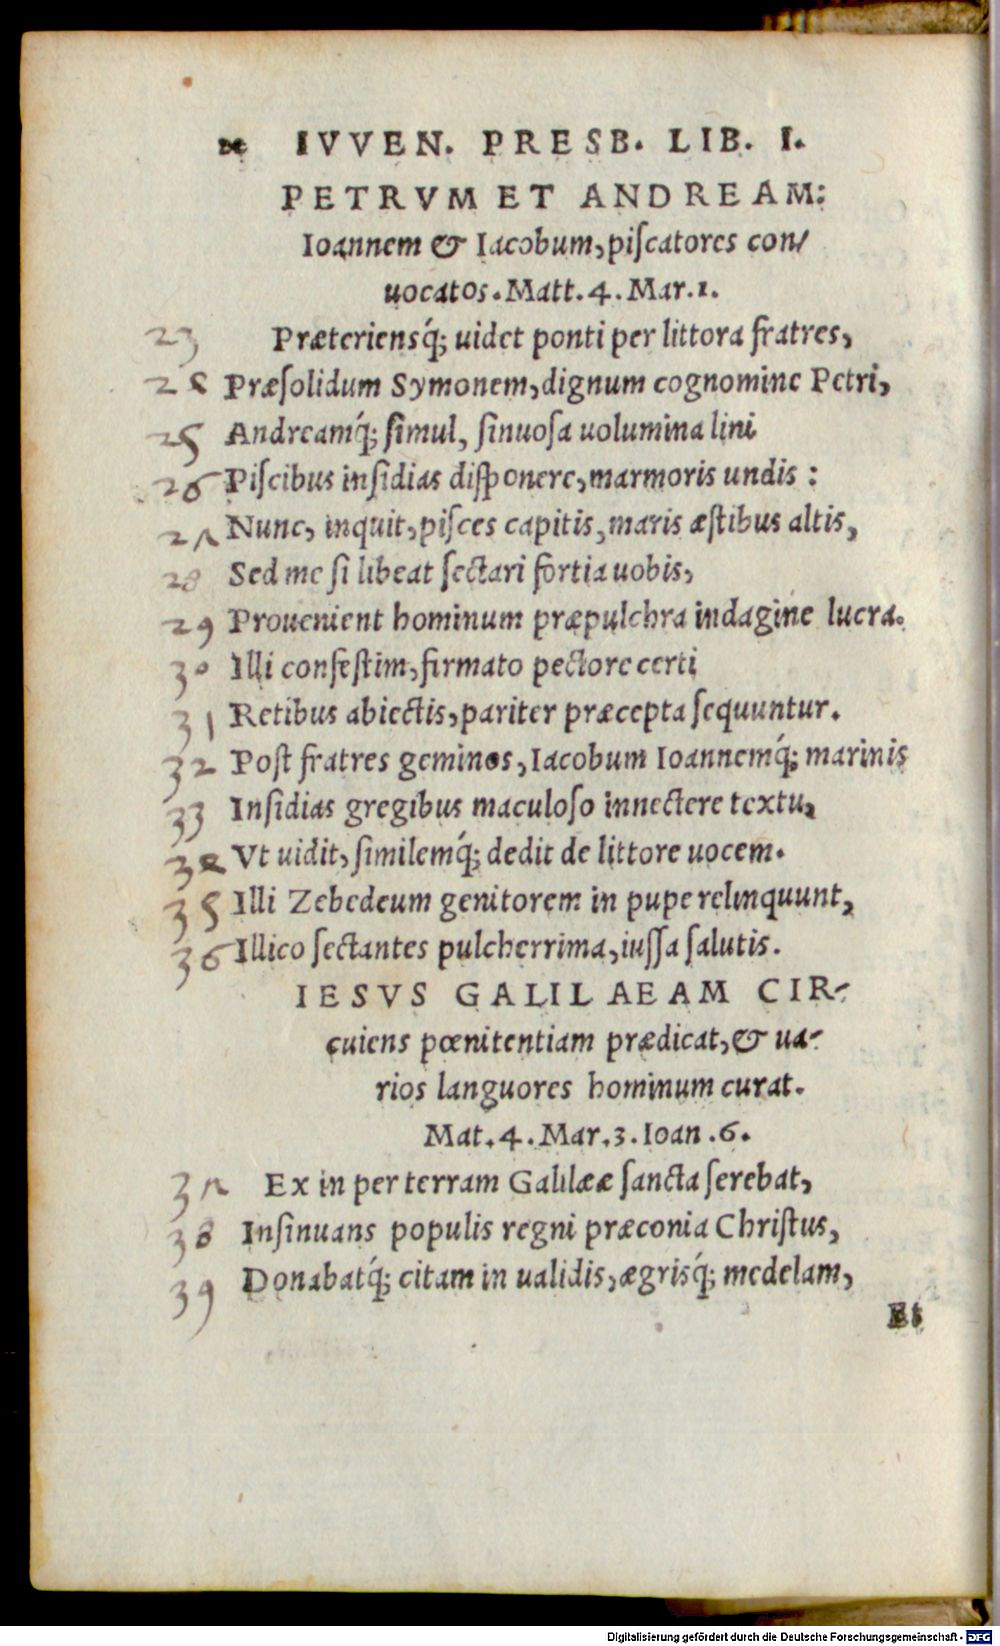 IVVEN. PRESB. LIB. I.
PETRVM ET ANDREAM:
Ioannem & Iacobum, piſcatores con/
uocatos. Matt. 4. Mar. 1.
23 Præteriensq́; uidet ponti per littora fratres,
24 Præſolidum Symonem, dignum cognomine Petri,
25 Andreamq́; ſimul, ſinuoſa uolumina lini
26 Piſcibus inſidias diſponere, marmoris undis :
27 Nunc, inquit, piſces capitis, maris æſtibus altis,
28 Sed me ſi libeat ſectari fortia uobis,
29 Prouenient hominum præpulchra indagine lucra.
30 Illi confeſtim, firmato pectore certi
31 Retibus abiectis, pariter præcepta ſequuntur.
32 Poſt fratres geminos, Iacobum Ioannemq́; marinis
33 Inſidias gregibus maculoſo innectere textu,
34 Vt uidit, ſimilemq́; dedit de littore uocem.
35 Illi Zebedeum genitorem in pupe relinquunt,
36 Illico ſectantes pulcherrima, iuſſa ſalutis.
IESVS GALILAEAM CIR-
cuiens pœnitentiam prædicat, & ua-
rios languores hominum curat.
Mat. 4. Mar. 3. Ioan. 6.
37 Ex in per terram Galilææ ſancta ſerebat,
38 Inſinuans populis regni præconia Chriſtus,
39 Donabatq́; citam in ualidis, ægrisq́; medelam,
Et
Digitalisierung gefördert durch die Deutsche Forschungsgemeinschaft - DFG